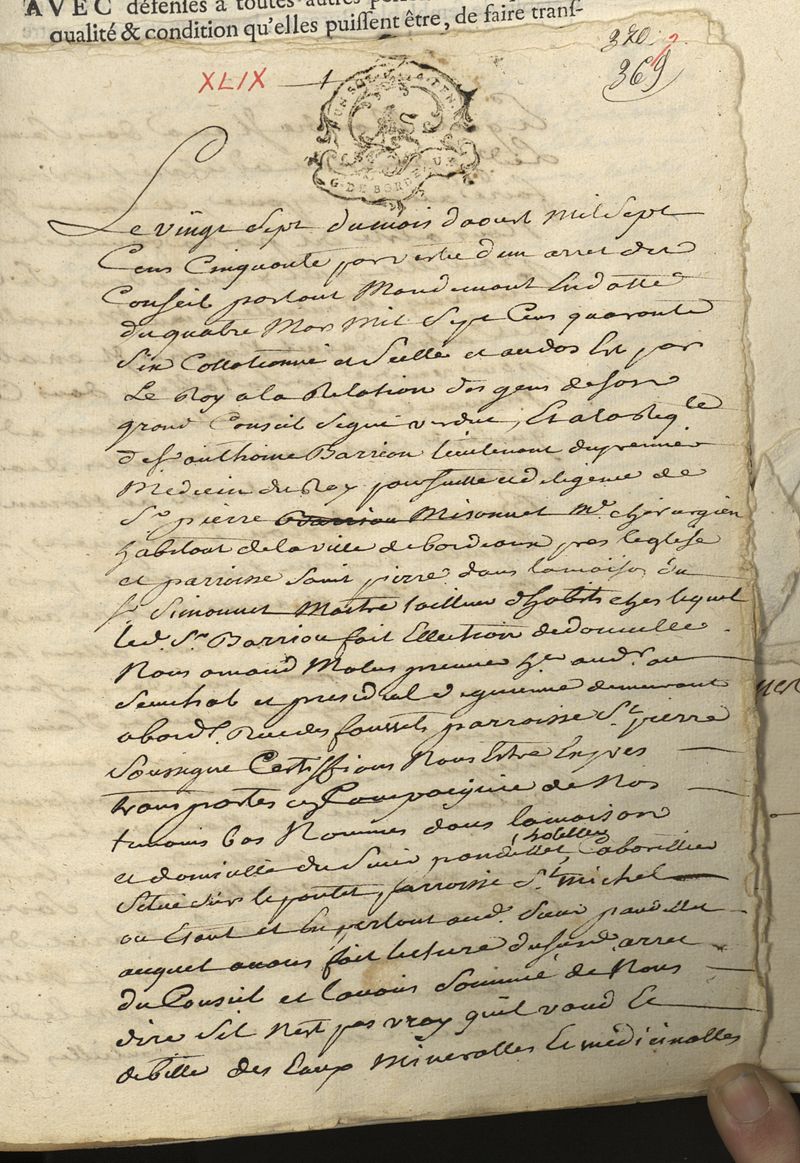 AVEC défenses à toutes autres
qualité & condition qu'elles puissent être, de faire transf-
370.
XLIX
1
369
G. DE BORDEAUX
Le vingt Sept du mois daoust Mil Sept
Cens Cinquante par vertu d'un arret du
Conseil portant Mandement En datte
du quatre Mars Mil Sept Cens quarante
Six Collationné et Scellé et au dos Est par
Le Roy a la Relation des gens de son
grand Conseil Signé verduc, Et a la Reqte
de Sr anthoine Barriou lieutenant du premier
Medecin du Roy poursuitte et diligence de
Sr pierre Barriou Misonnet Me chirurgien
habitant de la ville de bordeaux pres leglise
et parroisse Saint pierre dans la maison du
Sr Simonnet Maitre tailleur d'habits chez lequel
led. Sr Barriou fait Ellection de domicille
Nous amand Malus premier hr audr. au
Senechal et presidial de guienne demeurant
a bordx. Rue des faussets parroisse St. pierre
Soussigné Certiffions Nous Estre Expres
transportés En Compagnie de Nos
temoins bas Nommés dans la maison
et domicille du Sieur pandellet, hotellier Cabarettier
Situé Sur le pontet parroisse St. Michel
ou Etant et En parlant aud. Sieur pandellet
auquel avons fait lecture du susd. arret
du Conseil et l'avons Sommé de Nous
dire Sil N'est pas vray quil vand Et
debitte des Eaux Mineralles Et medicinalles